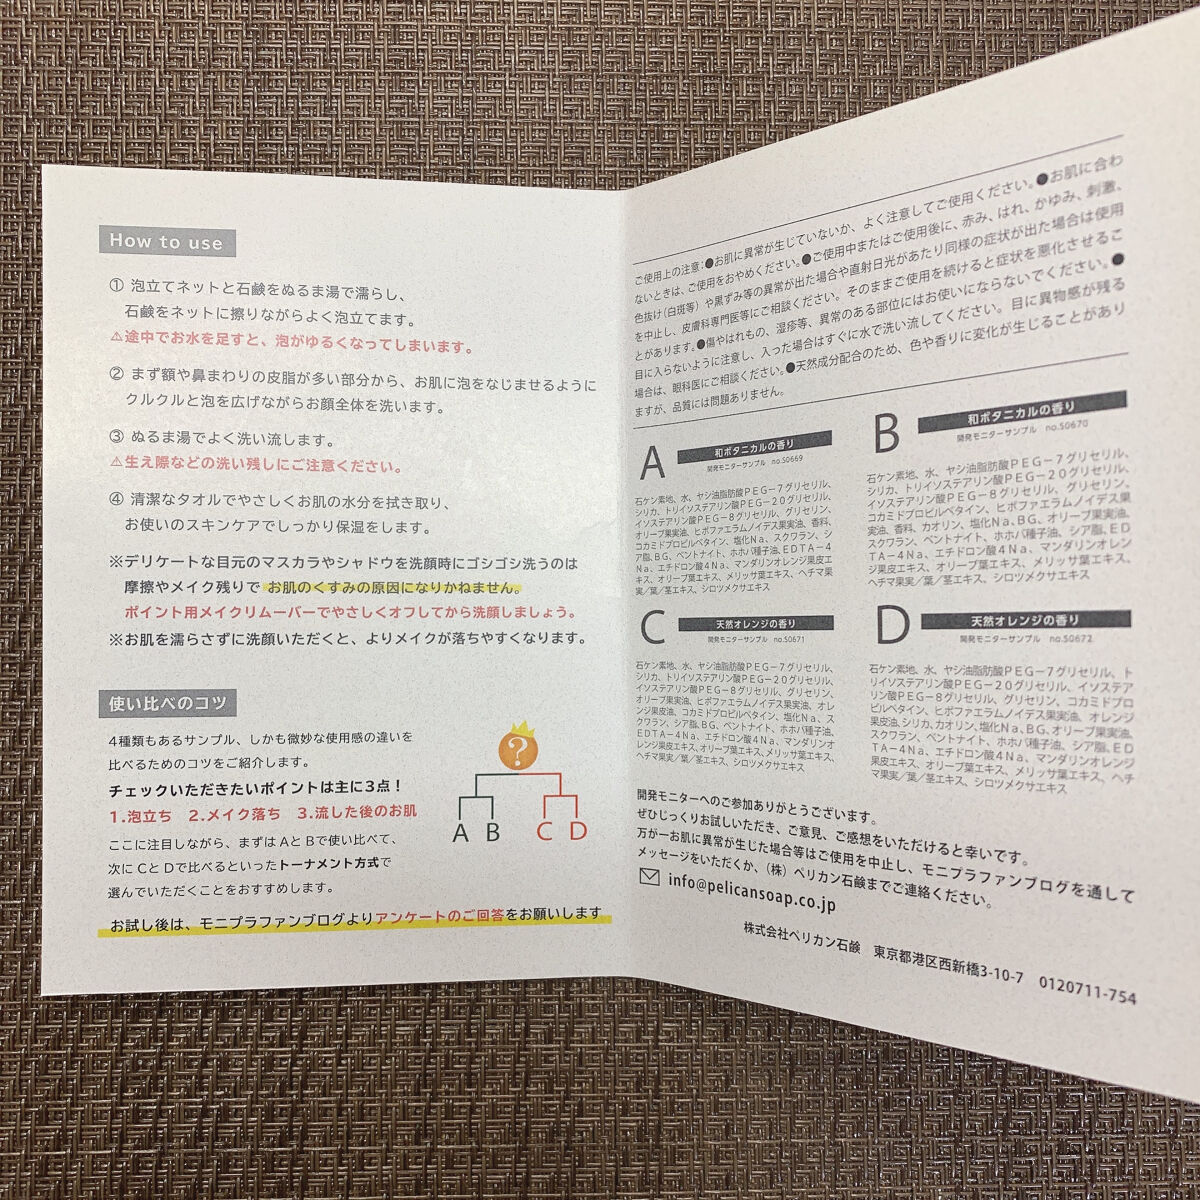 How to use
① 泡立てネットと石鹸をぬるま湯で濡らし、
石鹸をネットに擦りながらよく泡立てます。
⚠途中でお水を足すと、泡がゆるくなってしまいます。
② まず額や鼻まわりの皮脂が多い部分から、お肌に泡をなじませるように
クルクルと泡を広げながらお顔全体を洗います。
③ ぬるま湯でよく洗い流します。
⚠生え際などの洗い残しにご注意ください。
④ 清潔なタオルでやさしくお肌の水分を拭き取り、
お使いのスキンケアでしっかり保湿をします。
※デリケートな目元のマスカラやシャドウを洗顔時にゴシゴシ洗うのは
摩擦やメイク残りで お肌のくすみの原因になりかねません。
ポイント用メイクリムーバーでやさしくオフしてから洗顔しましょう。
※お肌を濡らさずに洗顔いただくと、よりメイクが落ちやすくなります。
使い比べのコツ
4種類もあるサンプル、しかも微妙な使用感の違いを
比べるためのコツをご紹介します。
チェックいただきたいポイントは主に3点！
1.泡立ち 2.メイク落ち 3.流した後のお肌
ここに注目しながら、まずはAとBで使い比べて、
次にCとDで比べるといったトーナメント方式で
選んでいただくことをおすすめします。
?
A B C D
お試し後は、モニプラファンブログよりアンケートのご回答をお願いします
ご使用上の注意:●お肌に異常が生じていないか、よく注意してご使用ください。●お肌に合わ
ないときは、ご使用をおやめください。●ご使用中またはご使用後に、赤み、はれ、かゆみ、刺激、
色抜け(白斑等)や黒ずみ等の異常が出た場合や直射日光があたり同様の症状が出た場合は使用
を中止し、皮膚科専門医等にご相談ください。そのままご使用を続けると症状を悪化させるこ
とがあります。●傷やはれもの、湿疹等、異常のある部位にはお使いにならないでください。●
目に入らないように注意し、入った場合はすぐに水で洗い流してください。目に異物感が残る
場合は、眼科医にご相談ください。●天然成分配合のため、色や香りに変化が生じることがあり
ますが、品質には問題ありません。
A 和ボタニカルの香り
開発モニターサンプル no.S0669
石ケン素地、水、ヤシ油脂肪酸PEG−7グリセリル、
シリカ、トリイソステアリン酸PEG−20グリセリル、
イソステアリン酸PEG−8グリセリル、グリセリン、
オリーブ果実油、ヒポファエラムノイデス果実油、香料、
コカミドプロピルベタイン、塩化Na、スクワラン、シ
ア脂、BG、ベントナイト、ホホバ種子油、EDTA−4
Na、エチドロン酸4Na、マンダリンオレンジ果皮エ
キス、オリーブ葉エキス、メリッサ葉エキス、ヘチマ果
実/葉/茎エキス、シロツメクサエキス
B 和ボタニカルの香り
開発モニターサンプル no.S0670
石ケン素地、水、ヤシ油脂肪酸PEG−7グリセリル、
シリカ、トリイソステアリン酸PEG−20グリセリル、
イソステアリン酸PEG−8グリセリル、グリセリン、
コカミドプロピルベタイン、ヒポファエラムノイデス果
実油、香料、カオリン、塩化Na、BG、オリーブ果実油、
スクワラン、ベントナイト、ホホバ種子油、シア脂、ED
TA−4Na、エチドロン酸4Na、マンダリンオレン
ジ果皮エキス、オリーブ葉エキス、メリッサ葉エキス、
ヘチマ果実/葉/茎エキス、シロツメクサエキス
C 天然オレンジの香り
開発モニターサンプル no.S0671
石ケン素地、水、ヤシ油脂肪酸PEG−7グリセリル、
シリカ、トリイソステアリン酸PEG−20グリセリル、
イソステアリン酸PEG−8グリセリル、グリセリン、
オリーブ果実油、ヒポファエラムノイデス果実油、オレ
ンジ果皮油、コカミドプロピルベタイン、塩化Na、ス
クワラン、シア脂、BG、ベントナイト、ホホバ種子油、
EDTA−4Na、エチドロン酸4Na、マンダリンオ
レンジ果皮エキス、オリーブ葉エキス、メリッサ葉エキス、
ヘチマ果実/葉/茎エキス、シロツメクサエキス
D 天然オレンジの香り
開発モニターサンプル no.S0672
石ケン素地、水、ヤシ油脂肪酸PEG−7グリセリル、ト
リイソステアリン酸PEG−20グリセリル、イソステア
リン酸PEG−8グリセリル、グリセリン、コカミドプロ
ピルベタイン、ヒポファエラムノイデス果実油、オレンジ
果皮油、シリカ、カオリン、塩化Na、BG、オリーブ果実油、
スクワラン、ベントナイト、ホホバ種子油、シア脂、ED
TA−4Na、エチドロン酸4Na、マンダリンオレンジ
果皮エキス、オリーブ葉エキス、メリッサ葉エキス、ヘチ
マ果実/葉/茎エキス、シロツメクサエキス
開発モニターへのご参加ありがとうございます。
ぜひじっくりお試しいただき、ご意見、ご感想をいただけると幸いです。
万が一お肌に異常が生じた場合等はご使用を中止し、モニプラファンブログを通して
メッセージをいただくか、(株)ペリカン石鹸までご連絡ください。
info@pelicansoap.co.jp
株式会社ペリカン石鹸 東京都港区西新橋3-10-7 0120711-754